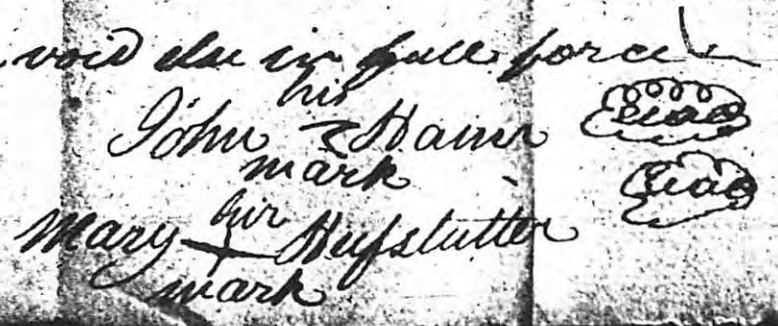 void else in full force
his
John Hamr Seal
mark
Seal
her
Mary + Hufstutter
mark